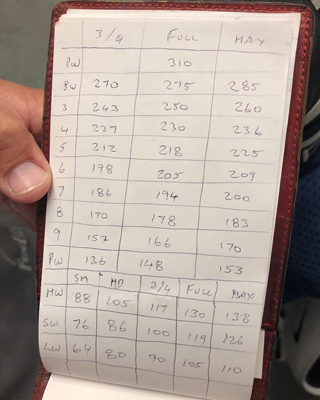 3/4 FULL MAX
1W 310
3W 270 275 285
3 243 250 260
4 227 230 236
5 212 218 225
6 198 205 209
7 186 194 200
8 170 178 183
9 157 166 170
PW 136 148 153
SM MD 3/4 FULL MAX
MW 88 105 117 130 138
SW 76 86 100 119 126
LW 64 80 90 105 110